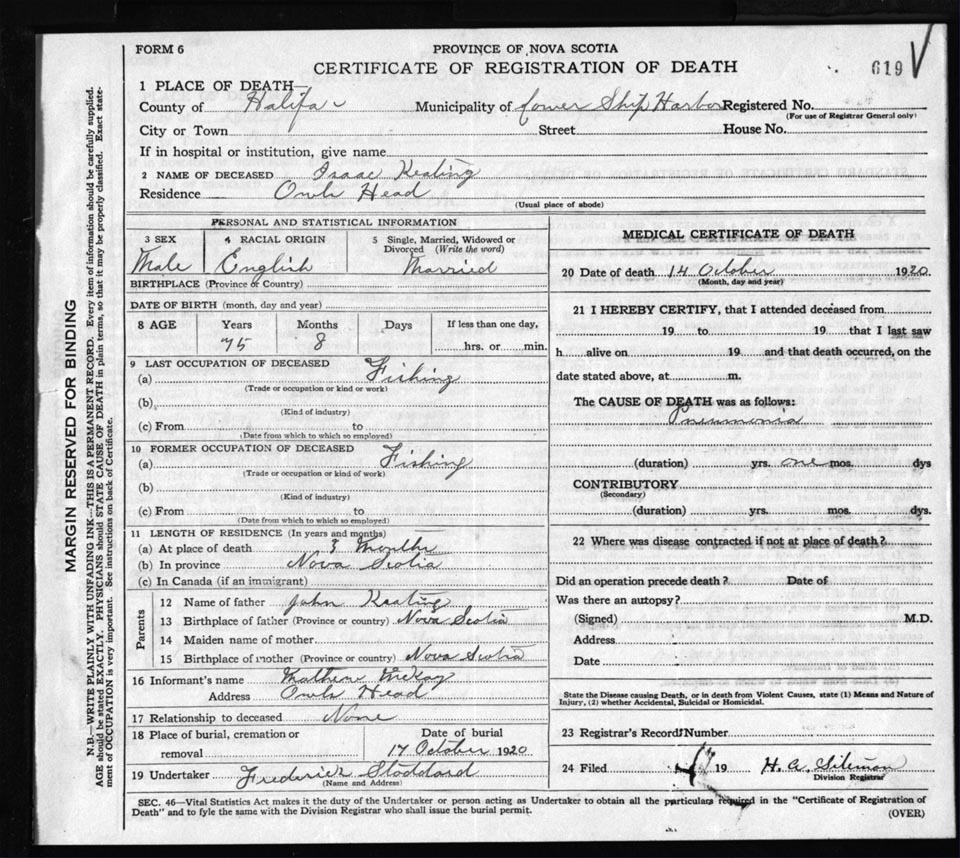 FORM 6
PROVINCE OF NOVA SCOTIA
CERTIFICATE OF REGISTRATION OF DEATH
619
1 PLACE OF DEATH—
County of Halifax Municipality of Lower Ship Harbor Registered No.
(For use of Registrar General only)
City or Town Street House No.
If in hospital or institution, give name
2 NAME OF DECEASED Isaac Keating
Residence Owls Head
(Usual place of abode)
PERSONAL AND STATISTICAL INFORMATION
3 SEX 4 RACIAL ORIGIN 5 Single, Married, Widowed or Divorced (Write the word)
Male English Married
BIRTHPLACE (Province or Country)
DATE OF BIRTH (month, day and year)
8 AGE Years Months Days If less than one day,
75 8 hrs. or min.
9 LAST OCCUPATION OF DECEASED
(a) Fishing
(Trade or occupation or kind or work)
(b)
(Kind of industry)
(c) From to
(Date from which to which so employed)
10 FORMER OCCUPATION OF DECEASED
(a) Fishing
(Trade or occupation or kind of work)
(b)
(Kind of industry)
(c) From to
(Date from which to which so employed)
11 LENGTH OF RESIDENCE (In years and months)
(a) At place of death Months
(b) In province Nova Scotia
(c) In Canada (if an immigrant)
Parents
12 Name of father John Keating
13 Birthplace of father (Province or country) Nova Scotia
14 Maiden name of mother
15 Birthplace of mother (Province or country) Nova Scotia
16 Informant's name Mathew McKay
Address Owls Head
17 Relationship to deceased None
18 Place of burial, cremation or removal Date of burial
17 October 1920
19 Undertaker Frederick Stoddard
(Name and Address)
MEDICAL CERTIFICATE OF DEATH
20 Date of death 14 October 1920
(Month, day and year)
21 I HEREBY CERTIFY, that I attended deceased from
19 to 19 that I last saw
h alive on 19 and that death occurred, on the
date stated above, at m.
The CAUSE OF DEATH was as follows:
Pneumonia
(duration) yrs. one mos. dys
CONTRIBUTORY
(Secondary)
(duration) yrs. mos. dys.
22 Where was disease contracted if not at place of death?
Did an operation precede death? Date of
Was there an autopsy?
(Signed) M.D.
Address
Date
State the Disease causing Death, or in death from Violent Causes, state (1) Means and Nature of
Injury, (2) whether Accidental, Suicidal or Homicidal.
23 Registrar's Record Number
24 Filed 19 H. A.
Division Registrar
SEC. 46—Vital Statistics Act makes it the duty of the Undertaker or person acting as Undertaker to obtain all the particulars required in the "Certificate of Registration of
Death" and to fyle the same with the Division Registrar who shall issue the burial permit.
(OVER)
MARGIN RESERVED FOR BINDING
N.B.—WRITE PLAINLY WITH UNFADING INK—THIS IS A PERMANENT RECORD. Every item of information should be carefully supplied.
AGE should be stated EXACTLY. PHYSICIANS should STATE CAUSE OF DEATH in plain terms, so that it may be properly classified. Exact state-
ment of OCCUPATION is very important. See instructions on back of Certificate.